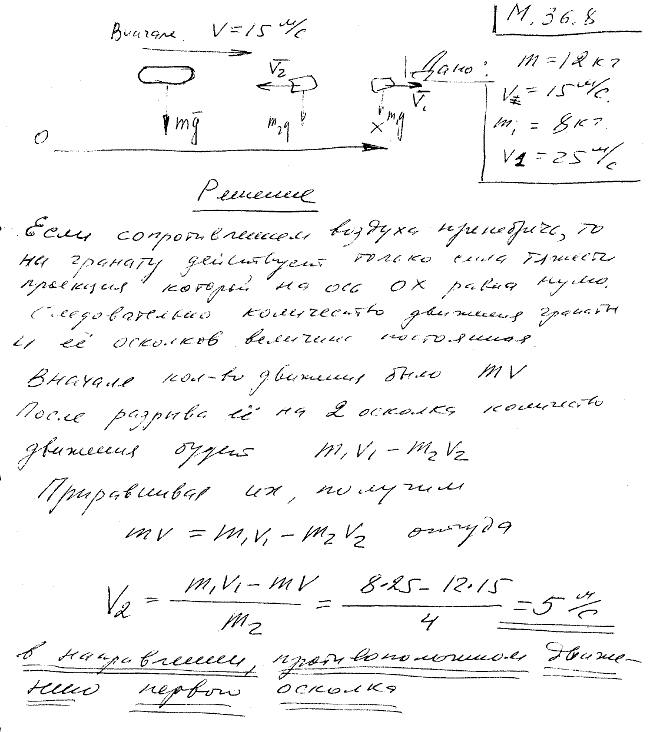 М. 36.8
Вначале V = 15 м/с
Дано: m = 12 кг
V = 15 м/с.
m₁ = 8 кг.
V1 = 25 м/с
V̅₂
V̅₁
mg̅
m₂g
m₁g
O
X
Решение
Если сопротивлением воздуха пренебречь, то
на гранату действует только сила тяжести
проекция которой на ось OX равна нулю.
Следовательно количество движения гранаты
и её осколков величина постоянная
Вначале кол-во движения было mV
После разрыва её на 2 осколка количество
движения будет m₁V₁ − m₂V₂
Приравнивая их, получим
mV = m₁V₁ − m₂V₂ откуда
V₂ = (m₁V₁ − mV)/m₂ = (8·25 − 12·15)/4 = 5 м/с
в направлении, противоположном движе-
нию первого осколка